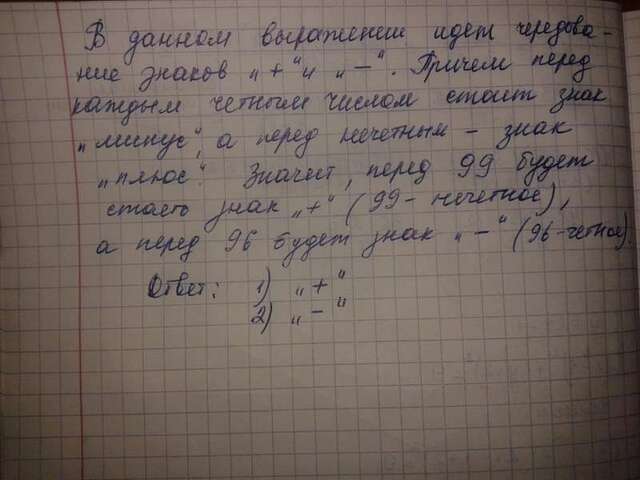 В данном выражении идет чередова-
ние знаков „+“ и „—“. Причем перед
каждым четным числом стоит знак
„минус“, а перед нечетным – знак
„плюс“. Значит, перед 99 будет
стоять знак „+“ (99 - нечетное),
а перед 96 будет знак „—“ (96-четное)
Ответ: 1) „+“
2) „—“